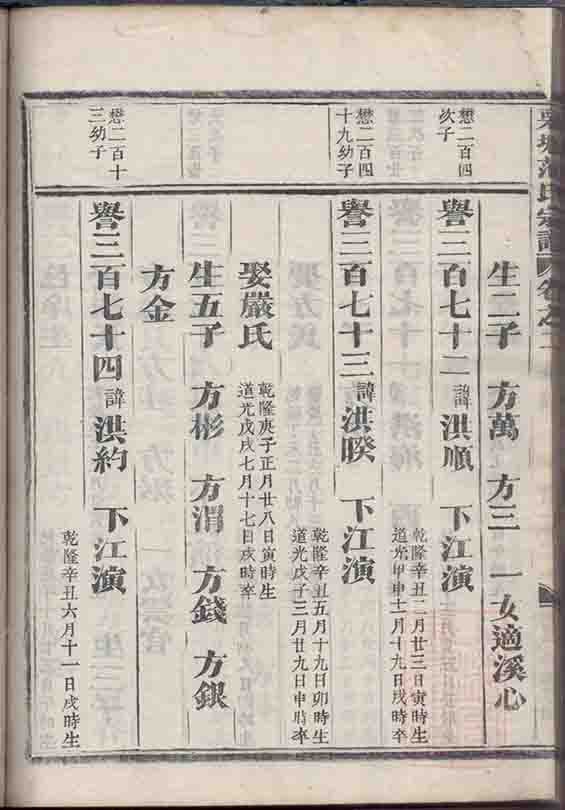 范氏宗譜
卷之二
生二子　方萬　方三　一女適溪心
懋二百四
次子
譽三百七十二　諱洪順　下江演
乾隆辛丑二月廿三日寅時生
道光甲申十一月十九日戌時卒
懋二百四
十九幼子
譽三百七十三　諱洪暌　下江演
乾隆辛丑五月十九日卯時生
道光戊子三月廿九日申時卒
娶嚴氏
乾隆庚子正月廿八日寅時生
道光戊戌七月十七日戌時卒
生五子　方彬　方渭　方錢　方銀
方金
懋二百十
三幼子
譽三百七十四　諱洪約　下江演
乾隆辛丑六月十一日戌時生